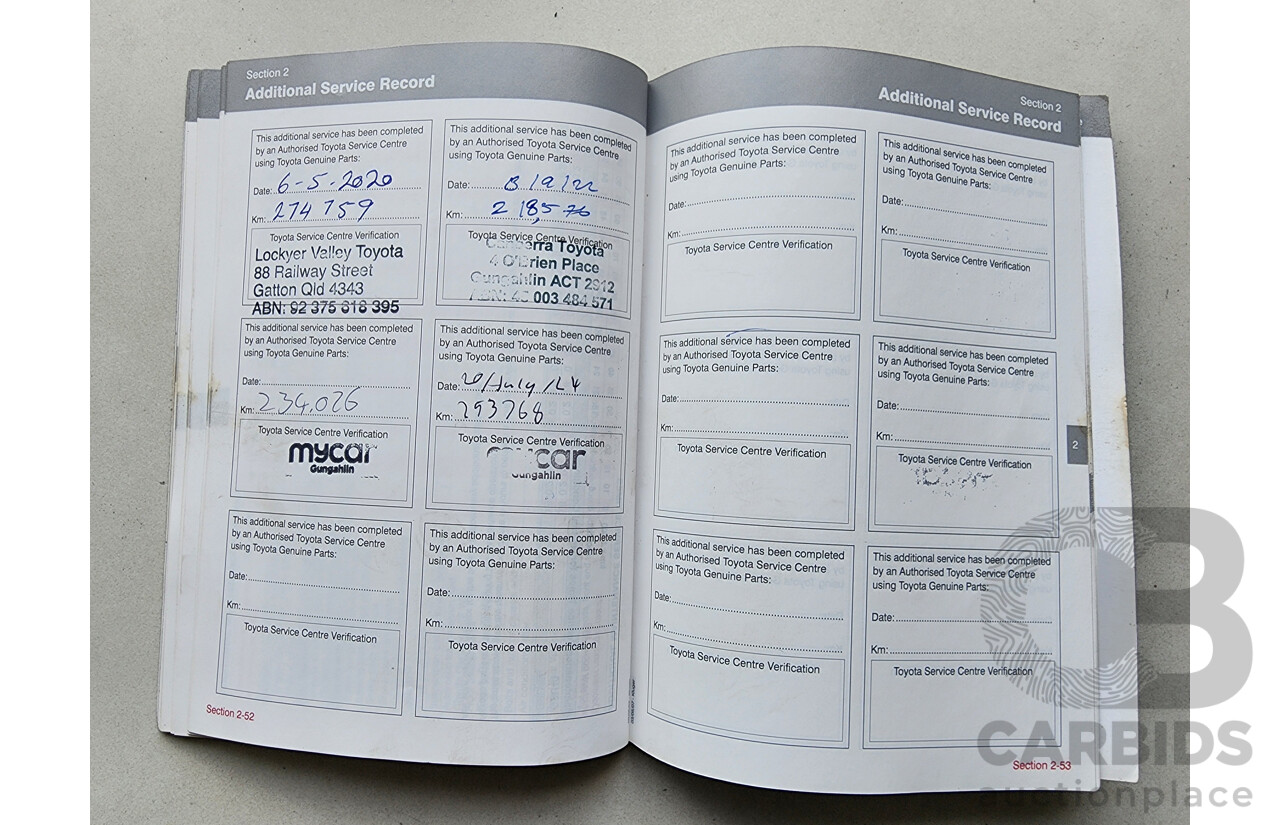 Section 2
Additional Service Record
This additional service has been completed
by an Authorised Toyota Service Centre
using Toyota Genuine Parts:
Date: 6-5-2020
Km: 274759
Toyota Service Centre Verification
Lockyer Valley Toyota
88 Railway Street
Gatton Qld 4343
ABN: 92 375 618 395
This additional service has been completed
by an Authorised Toyota Service Centre
using Toyota Genuine Parts:
Date: 8/9/22
Km:
Toyota Service Centre Verification
Canberra Toyota
4 O'Brien Place
Gungahlin ACT 2912
ABN: 45 003 484 571
This additional service has been completed
by an Authorised Toyota Service Centre
using Toyota Genuine Parts:
Date:
Km: 234,026
Toyota Service Centre Verification
mycar
Gungahlin
This additional service has been completed
by an Authorised Toyota Service Centre
using Toyota Genuine Parts:
Date: 20/July/24
Km: 293768
Toyota Service Centre Verification
mycar
Gungahlin
This additional service has been completed
by an Authorised Toyota Service Centre
using Toyota Genuine Parts:
Date:
Km:
Toyota Service Centre Verification
This additional service has been completed
by an Authorised Toyota Service Centre
using Toyota Genuine Parts:
Date:
Km:
Toyota Service Centre Verification
Section 2-52
Section 2
Additional Service Record
This additional service has been completed
by an Authorised Toyota Service Centre
using Toyota Genuine Parts:
Date:
Km:
Toyota Service Centre Verification
This additional service has been completed
by an Authorised Toyota Service Centre
using Toyota Genuine Parts:
Date:
Km:
Toyota Service Centre Verification
This additional service has been completed
by an Authorised Toyota Service Centre
using Toyota Genuine Parts:
Date:
Km:
Toyota Service Centre Verification
This additional service has been completed
by an Authorised Toyota Service Centre
using Toyota Genuine Parts:
Date:
Km:
Toyota Service Centre Verification
2
This additional service has been completed
by an Authorised Toyota Service Centre
using Toyota Genuine Parts:
Date:
Km:
Toyota Service Centre Verification
This additional service has been completed
by an Authorised Toyota Service Centre
using Toyota Genuine Parts:
Date:
Km:
Toyota Service Centre Verification
Section 2-53
CB
CARBIDS
auctionplace